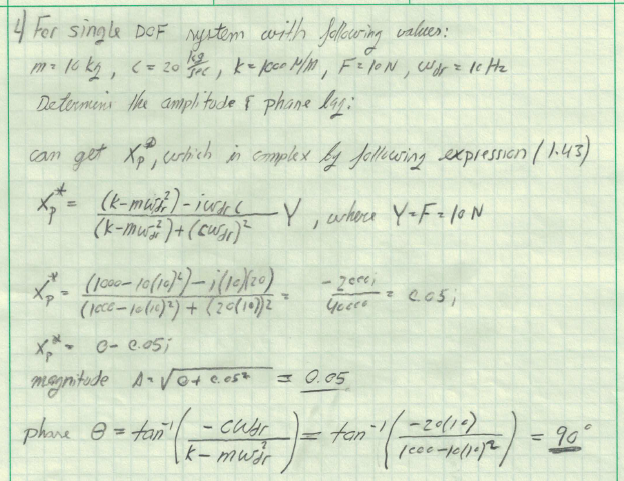 4) For single DOF system with following values:
m = 10 kg, c = 20 kg/sec, k = 1000 N/m, F = 10 N, ω_dr = 10 Hz
Determine the amplitude & phase lag:
can get X_p^*, which is complex by following expression (1.43)
X_p^* = ((k-mω_dr^2) - iω_dr c) / ((k-mω_dr^2) + (cω_dr)^2) Y, where Y = F = 10 N
X_p^* = ((1000-10(10)^2) - i(10)(20)) / ((1000-10(10)^2) + (20(10))^2) = -2000i / 40000 = 0.05i
X_p^* = 0 - 0.05i
magnitude A = √(0 + 0.05^2) = 0.05
phase θ = tan^-1(-cω_dr / (k-mω_dr^2)) = tan^-1(-20(10) / (1000-10(10)^2)) = 90°